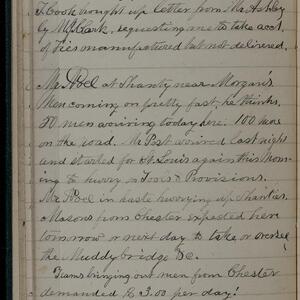 T. Cook brought up letter from Mr. Ashley
by Mr. Clark, requesting me to take acct.
of Ties manufactured but not delivered.
Mr. Abel at Shanty near Morgan's
Men coming on pretty fast, he thinks,
20 men arriving today here. 100 more
on the road. Mr Post arrived last night
and started for St. Louis again this Morn-
ing to hurry on Tools & Provisions.
Mr. Abel in haste hurrying up Shanties.
Masons from Chester expected here
tomorrow or next day to take or oversee
the Muddy bridge &c.
Teams bringing out men from Chester
demanded $3.00 per day!